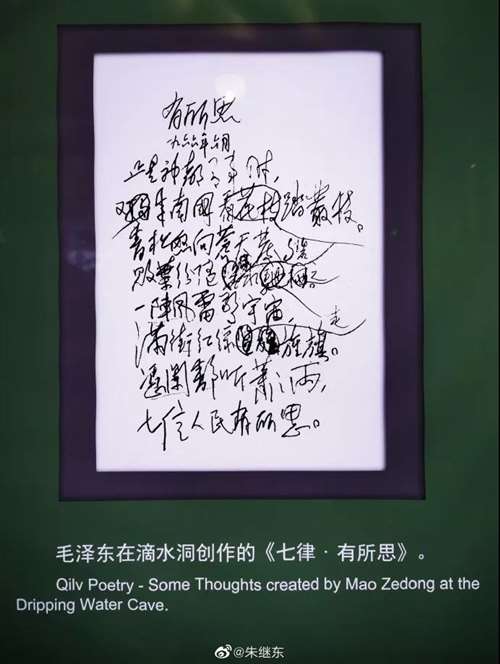 有所思
一九六六年六月
正是神都有事时,
又来南国看花枝踏叢枝。
青松怒向苍天
败叶纷随
一阵风雷惊宇宙,
走
满街红绿旌旗。
凭阑静听萧雨,
七亿人民有所思。
毛泽东在滴水洞创作的《七律·有所思》。
Qilv Poetry - Some Thoughts created by Mao Zedong at the
Dripping Water Cave.
@朱继东